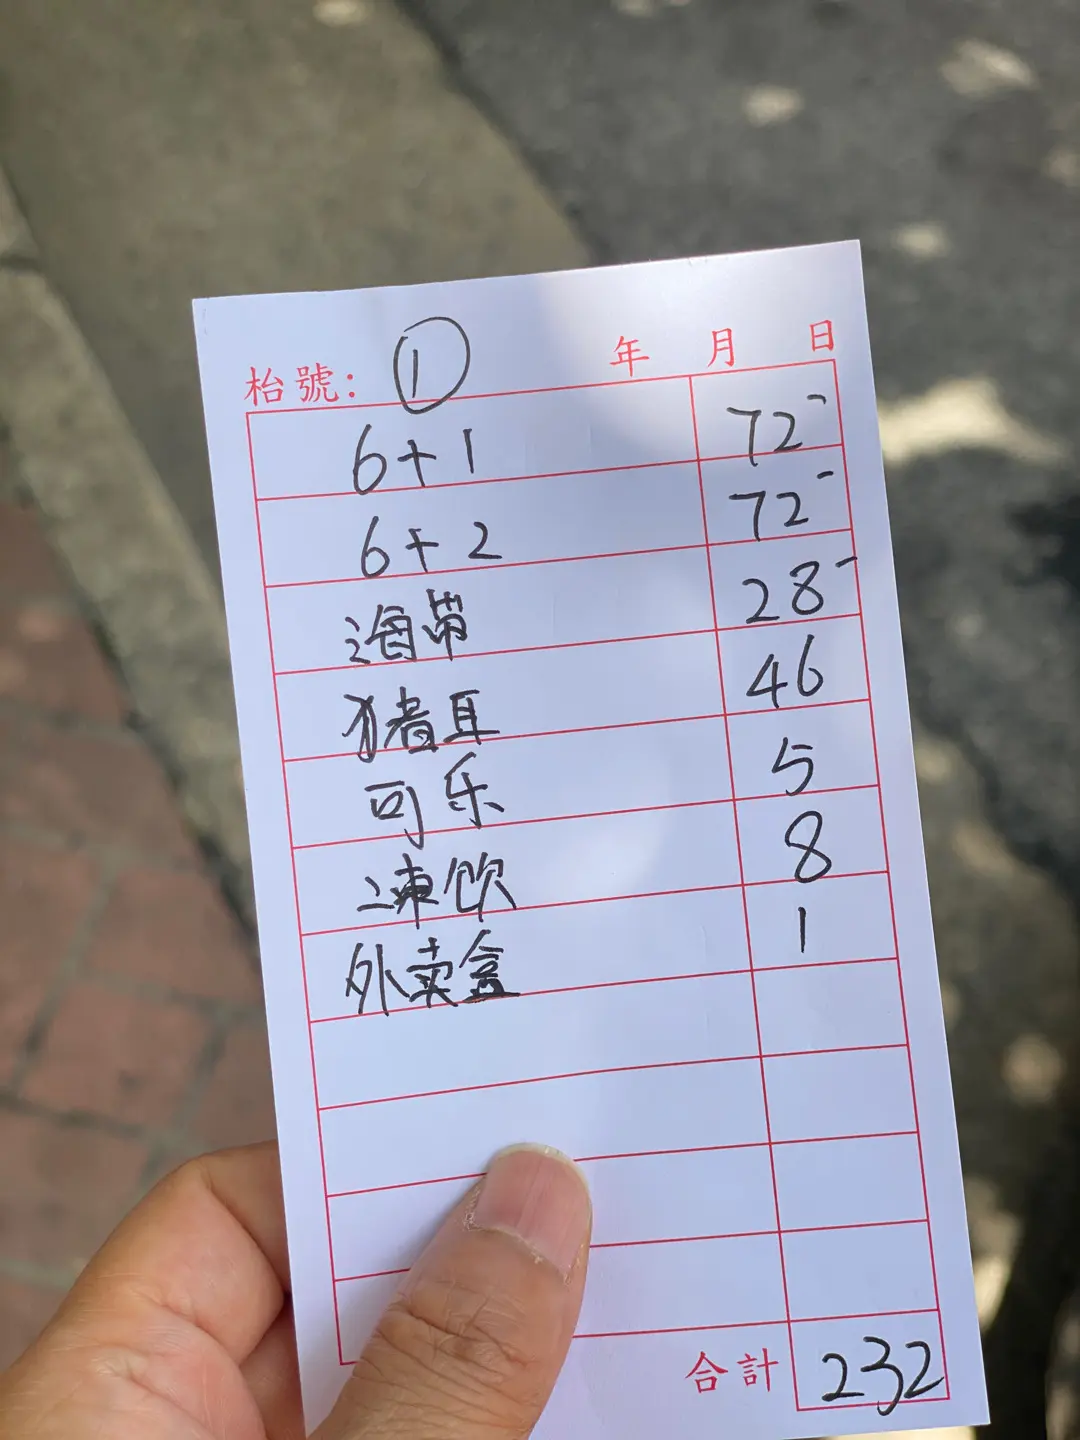 枱號: ① 年 月 日
6+1 72-
6+2 72-
海带 28-
猪耳 46
可乐 5
冻饮 8
外卖盒 1
合計 232